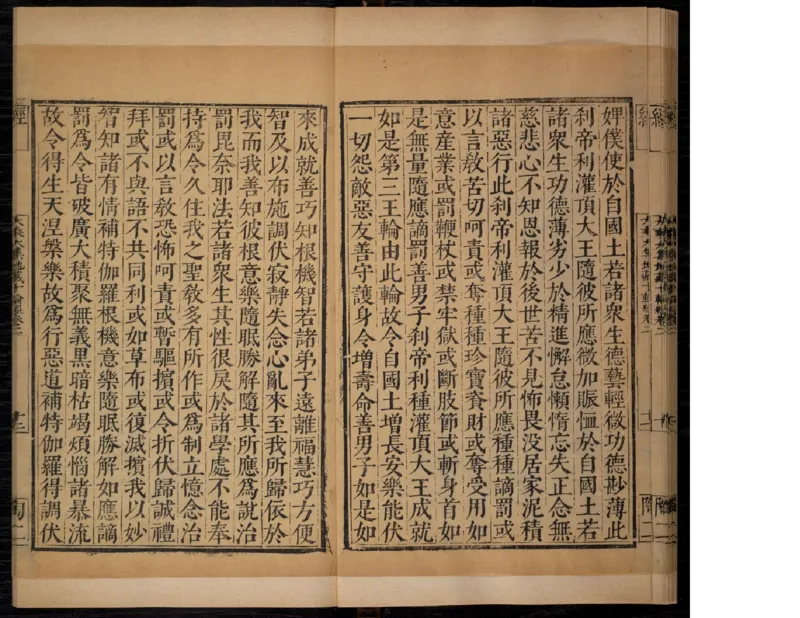 婢僕使於自國土若諸衆生德藝輕微功德尠薄此
刹帝利灌頂大王隨彼所應微加賑恤於自國土若
諸衆生功德薄劣少於精進懈怠懶惰忘失正念無
慈悲心不知恩報於後世苦不見怖畏没居家泥積
諸惡行此刹帝利灌頂大王隨彼所應種種謫罰或
以言敎苦切呵責或奪種種珍寶資財或奪受用如
意產業或罰鞭杖或禁牢獄或斷肢節或斬身首如
是無量隨應謫罰善男子刹帝利種灌頂大王成就
如是第二王輪由此輪故令自國土增長安樂能伏
一切怨敵惡友善守護身令增壽命善男子如是如
來成就善巧知根機智若諸弟子遠離福慧巧方便
智及以布施調伏寂靜失念心亂來至我所歸依於
我而我善知彼根意樂隨眠勝解隨其所應爲說治
罰毘奈耶法若諸衆生其性很戾於諸學處不能奉
持爲令久住我之聖敎多有所作或爲制立憶念治
罰或以言敎恐怖呵責或暫驅擯或令折伏歸誠禮
拜或不與語不共同利或如草布或復滅擯我以妙
智知諸有情補特伽羅根機意樂隨眠勝解如應謫
罰爲令皆破廣大積聚無義黑暗枯竭煩惱諸暴流
故令得生天涅槃樂故爲行惡道補特伽羅得調伏
經
陶二